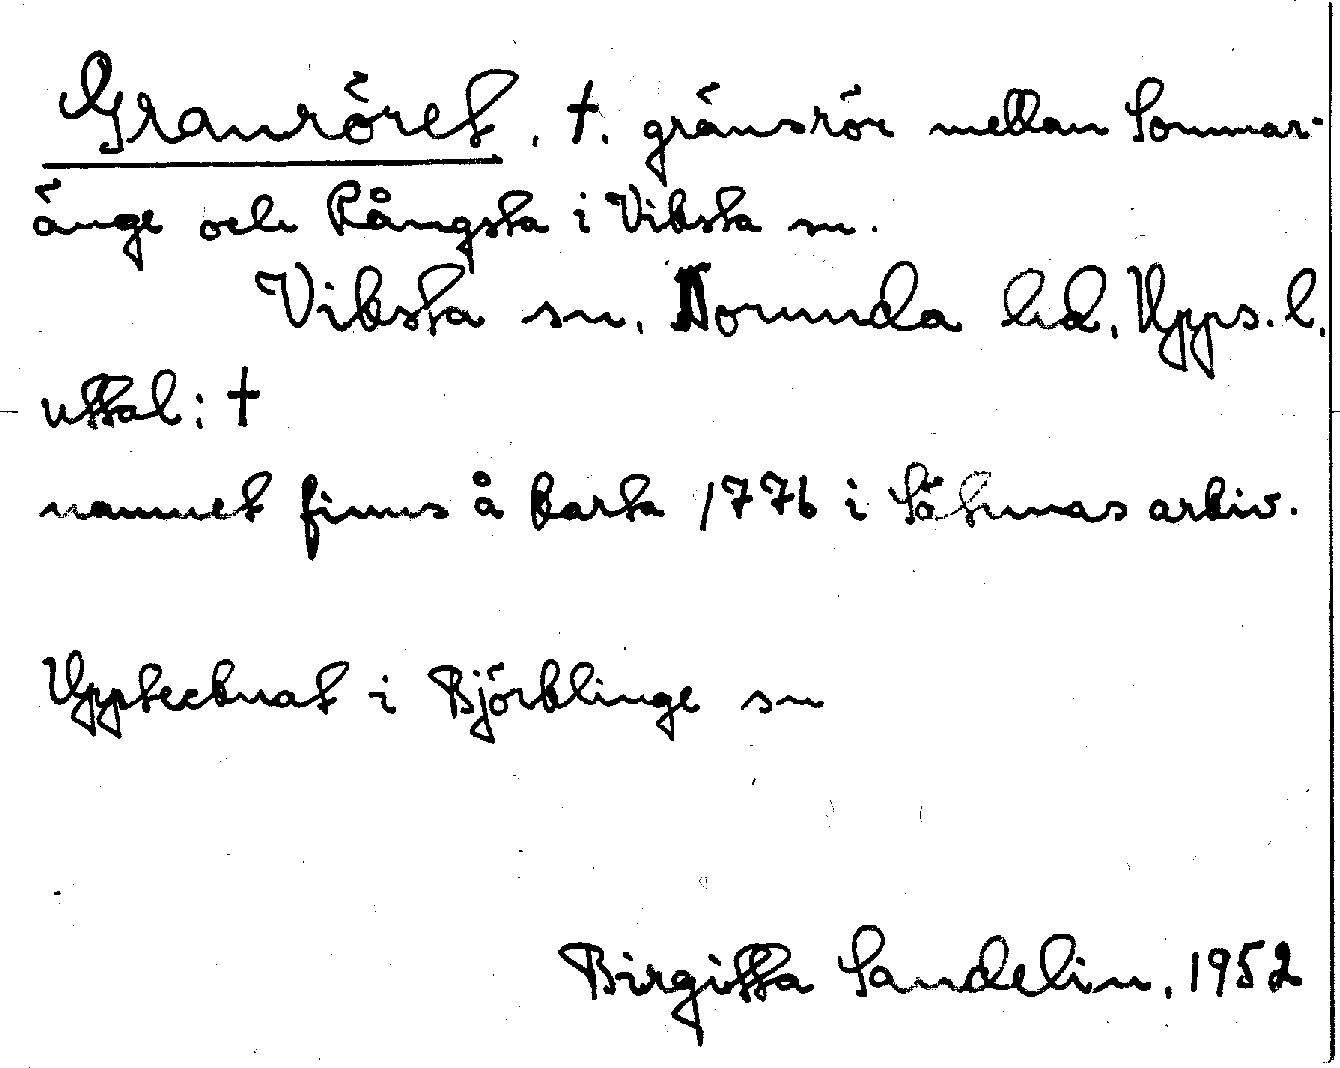 Granröret, †. gränsrör mellan Sommar-
änge och Rångsta i Viksta sn.
Viksta sn, Norunda hd, Upps. l.
uttal: †
namnet finns å karta 1776 i Sätunas arkiv.
Upptecknat i Björklinge sn
Birgitta Sandelin, 1952